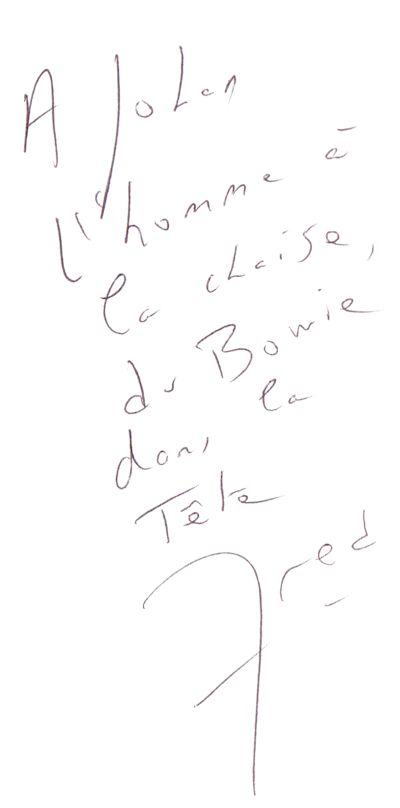 A Johan
l'homme à
la chaise,
du Bowie
dans la
Tête
Fred